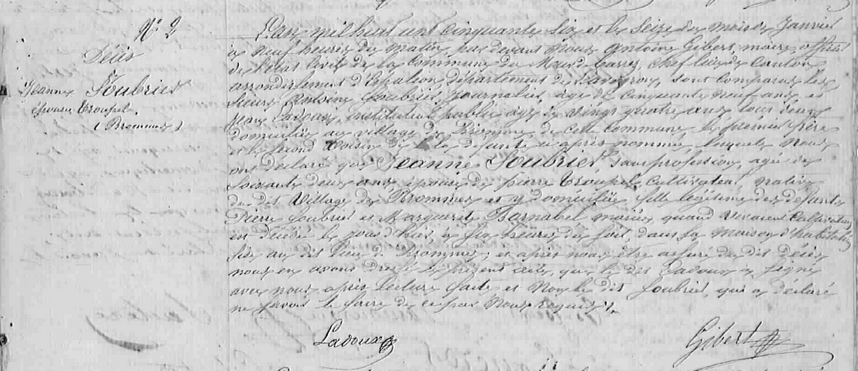 N° 2
Décès
Jeanne Joubries
épouse Croupel.
(Bromme)
L'an mil huit cent cinquante six et le seize du mois de Janvier
à neuf heures du matin, par devant nous Antoine Gibert, maire, officier
de l'état civil de la commune du Mur de Barrez, chef lieu de canton
arrondissement d'Espalion, département de l'aveyron, sont comparus les
sieurs Joubries, Journalier, âgé de cinquante neuf ans, et
Ladoux, instituteur public, âgé de vingt quatre ans, tous deux
domiciliés au village de Bromme de cette commune, le premier frère
et le second voisin de la défunte ci après nommée, lesquels nous
ont déclaré que Jeanne Joubries, sans profession, âgée de
soixante deux ans, épouse de pierre Croupel, cultivateur, native
du dit village de Bromme et y domiciliée, fille légitime des défunts
Pierre Joubries et Marguerite mariés, quand vivaient cultivateurs
est décédée le jour d'hier à six heures du soir, dans sa maison d'habitation
sise au dit lieu de Bromme; et après nous être assuré du dit décès
nous en avons dressé le présent acte, que le dit Ladoux a signé
avec nous après lecture faite et non le dit Joubries, qui a déclaré
ne savoir le faire de ce par nous requis.
Ladoux
Gibert